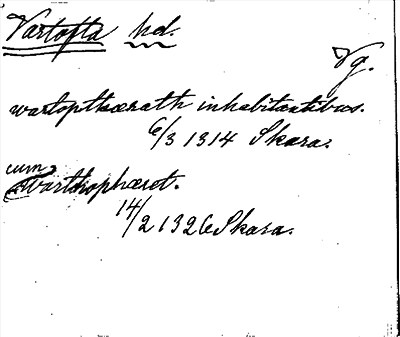 Vartofta hd.
Vg.
wartopthærath inhabitantibus.
6/3 1314 Skara.
cum warthophæret.
14/2 1326 Skara.